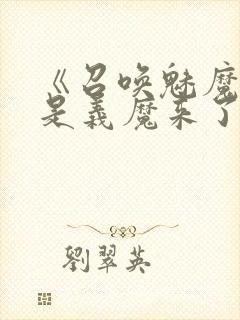 《召唤魅魔
是義魔来了
劉翠英